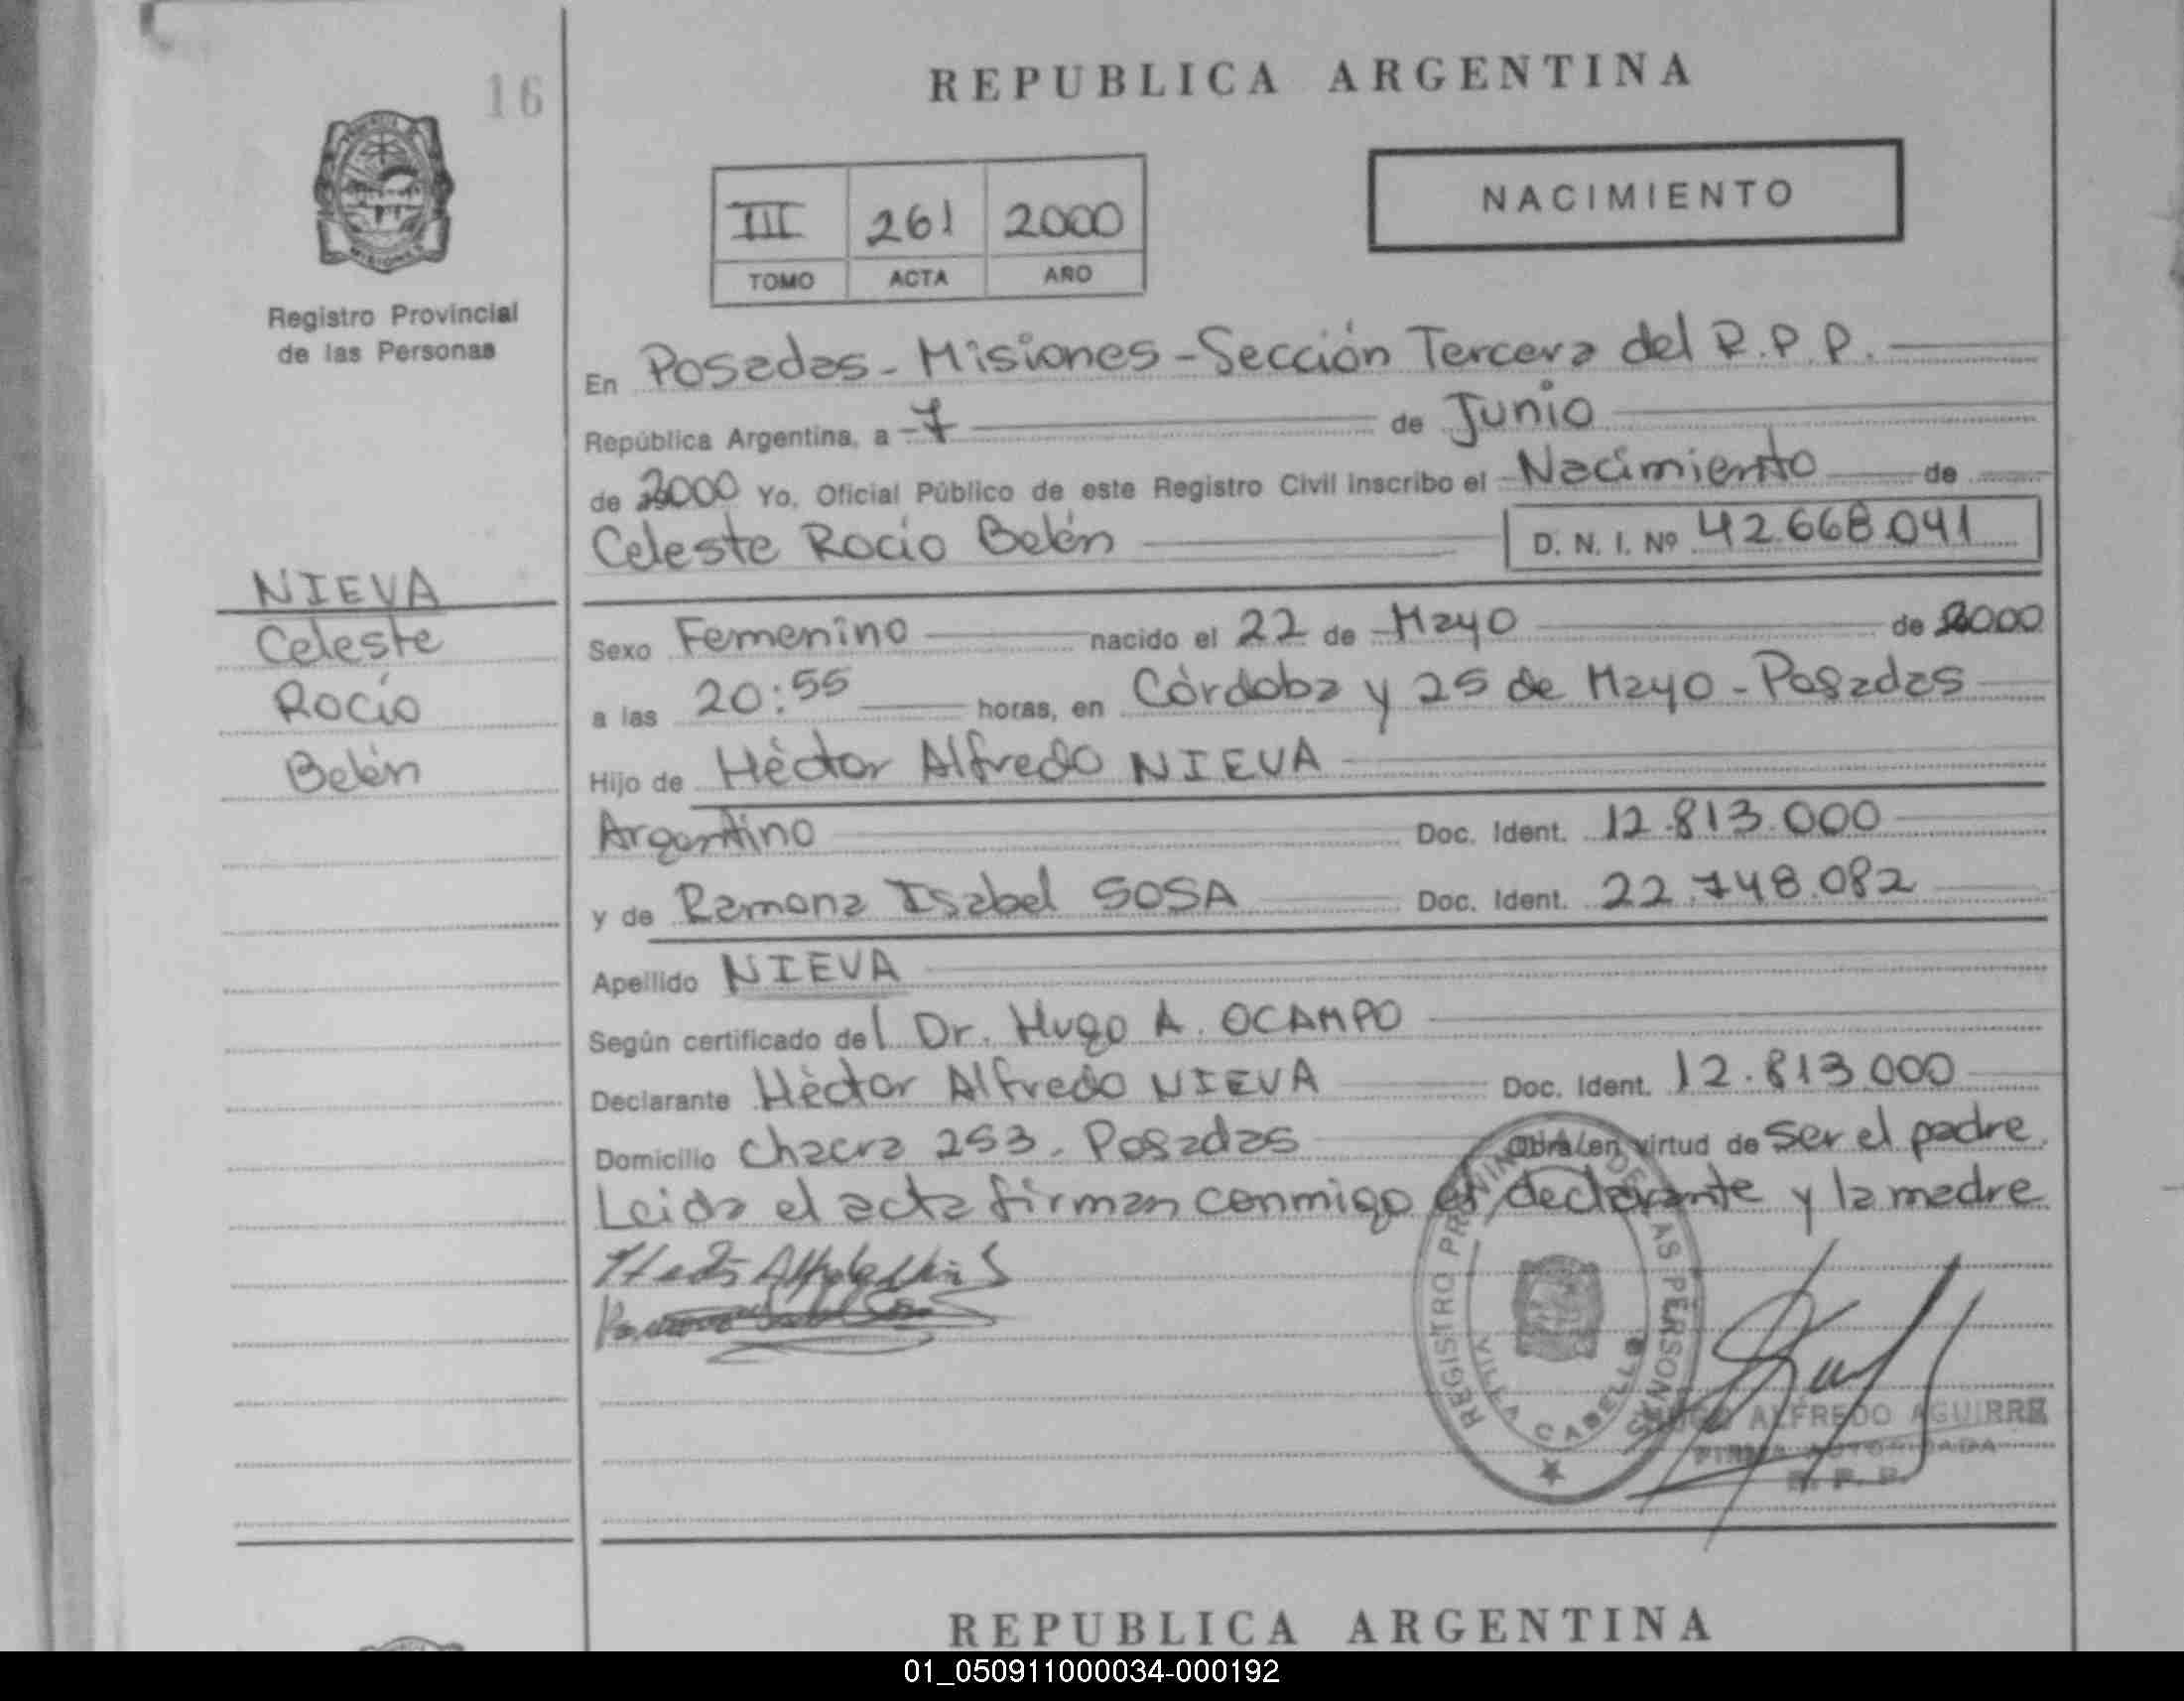 16
REPUBLICA ARGENTINA
NACIMIENTO
III 261 2000
TOMO ACTA AÑO
Registro Provincial
de las Personas
En Posadas - Misiones - Sección Tercera del R.P.P.
República Argentina, a 7 de Junio
de 2000 Yo, Oficial Público de este Registro Civil inscribo el Nacimiento de
Celeste Rocío Belén D. N. I. Nº 42.668.041
NIEVA
Celeste
Rocío
Belén
Sexo Femenino nacido el 22 de Mayo de 2000
a las 20:55 horas, en Córdoba y 25 de Mayo - Posadas
Hijo de Héctor Alfredo NIEVA
Argentino Doc. Ident. 12.813.000
y de Ramona Isabel SOSA Doc. Ident. 22.748.082
Apellido NIEVA
Según certificado del Dr. Hugo A. OCAMPO
Declarante Héctor Alfredo NIEVA Doc. Ident. 12.813.000
Domicilio Chacra 253. Posadas Obra en virtud de ser el padre.
Leida el acta firman conmigo el declarante y la madre
REGISTRO PROVINCIAL DE LAS PERSONAS
VILLA CABELLO
ALFREDO AGUIRRE
FIRMA AUTORIZADA
R. P. P.
REPUBLICA ARGENTINA
01_050911000034-000192